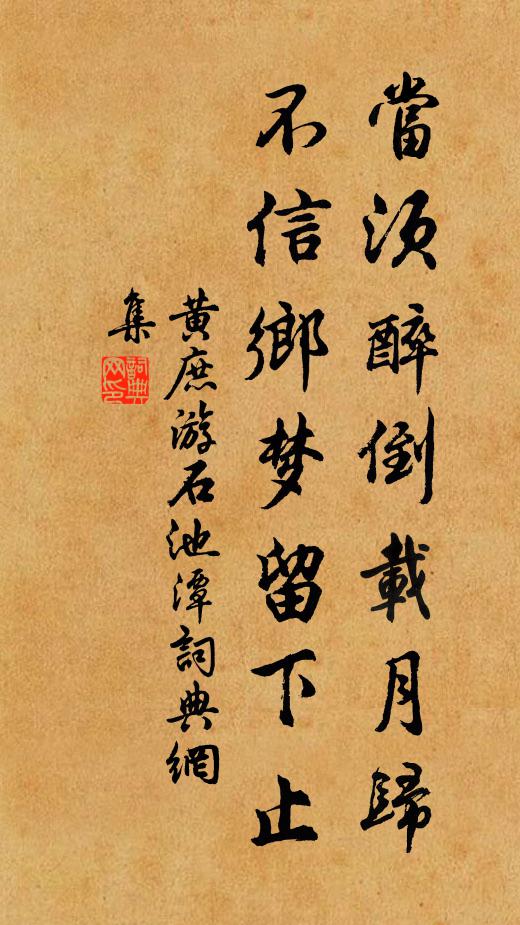 當須醉倒載月歸
不信鄉梦留下止
黃庶游石池潭詞典網
集
詞典网印